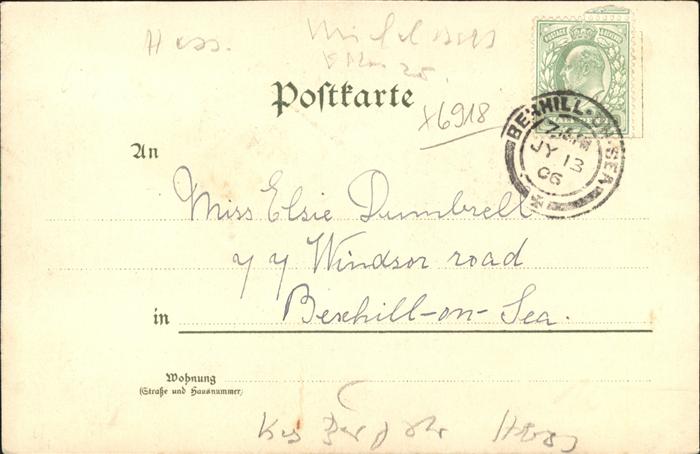 Hess.
Postkarte
x6918
POSTAGE & REVENUE
BEXHILL-ON-SEA
7.15PM
JY 13
06
An
Miss Elsie Dumbrell
77 Windsor road
in
Bexhill-on-Sea.
Wohnung
(Straße und Hausnummer)